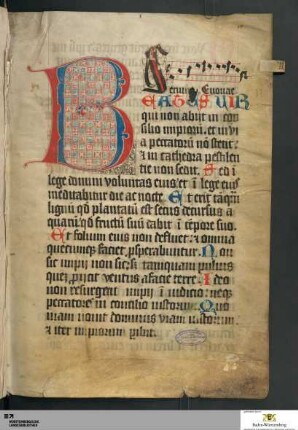 Seruite. Euouae.
BEATUS UIR
qui non abijt in con
silio impiorū. et in vi
a peccatorū nō stetit:
⁊ in cathedra pestilen
tie non sedit. Sed in
lege domini voluntas eius: et in lege eius
meditabitur die ac nocte. Et erit tāq̄m
lignū qd plantatū est secus decursus a
quarū: qd fructū suū dabit in tēpore suo.
Et folium eius non defluet: ⁊ omnia
quecumq; faciet, psperabuntur. Non
sic impij non sic: sed tamquam puluis
quez, pijcit ventus a facie terre. Ideo
non resurgent impij in iudicio: neq;
peccatores in concilio iustorum. Quo
niam nouit dominus viam iustorum:
⁊ iter impiorum pibit.
WÜRTTEMBERGISCHE
LANDESBIBLIOTHEK
Baden-Württemberg